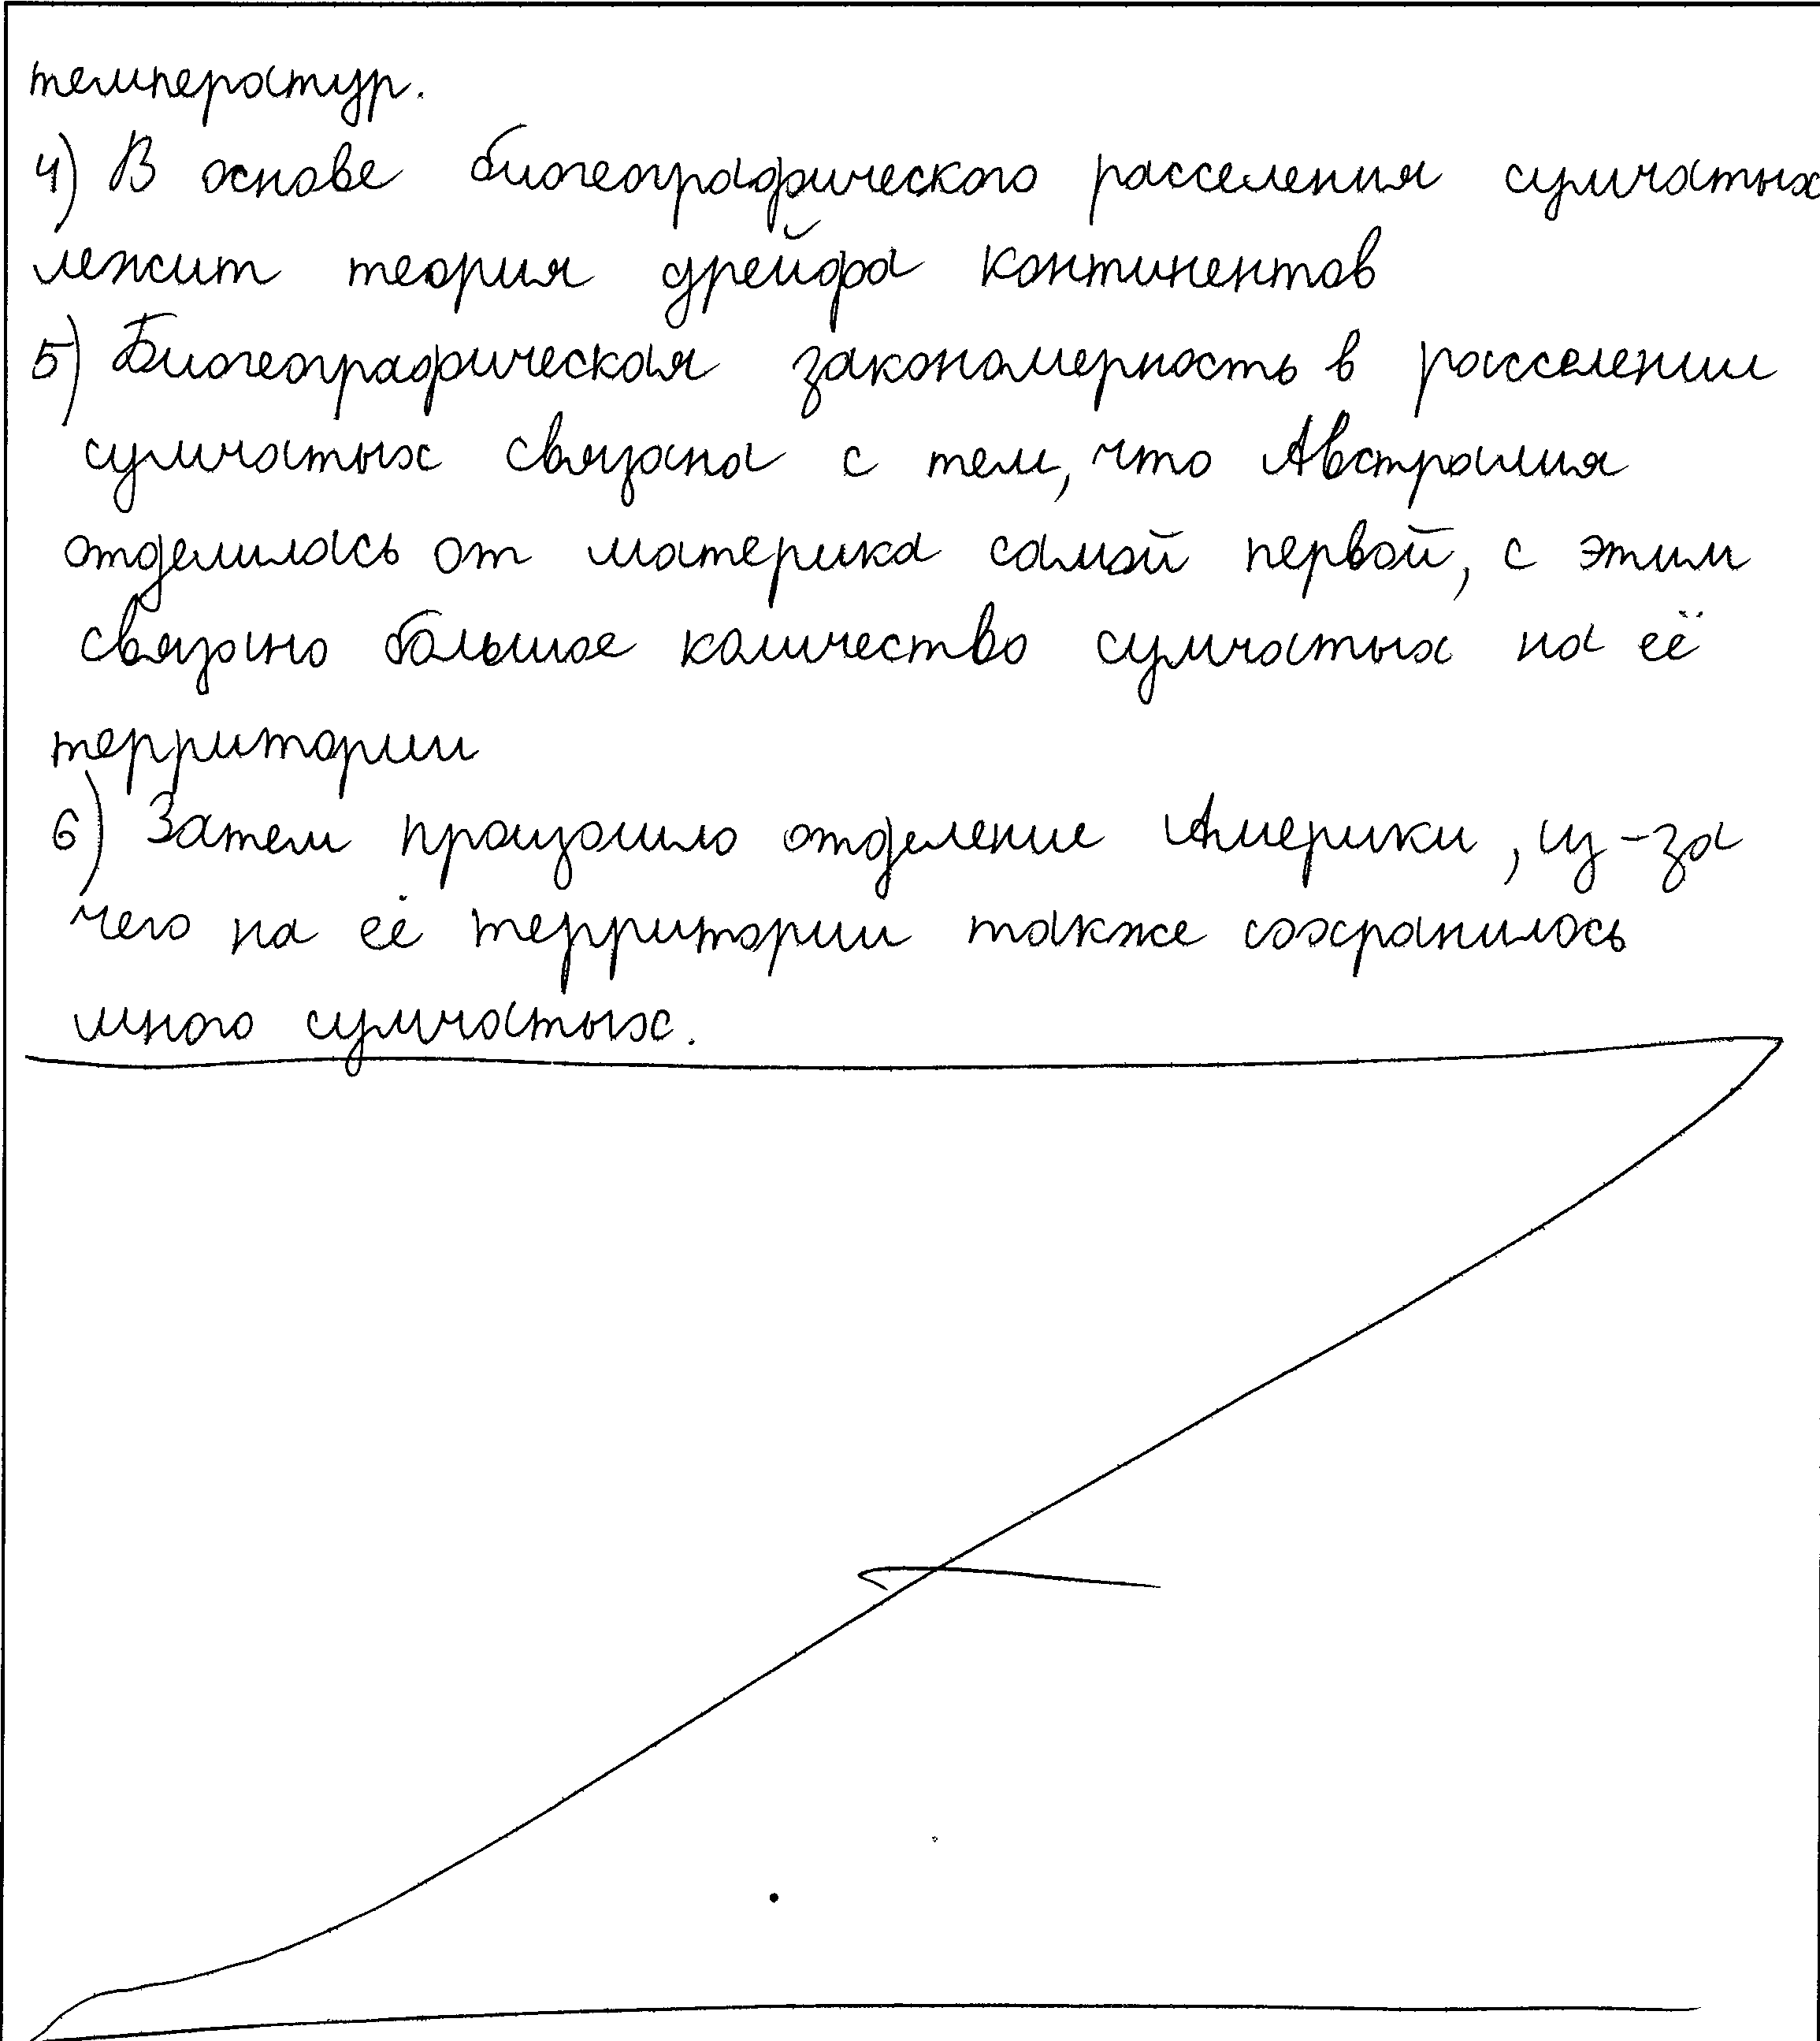 температур.
4) В основе биогеографического расселения сумчатых
лежит теория дрейфа континентов
5) Биогеографическая закономерность в расселении
сумчатых связана с тем, что Австралия
отделилась от материка самой первой, с этим
связано большое количество сумчатых на её
территории
6) Затем произошло отделение Америки, из-за
чего на её территории также сохранилось
много сумчатых.